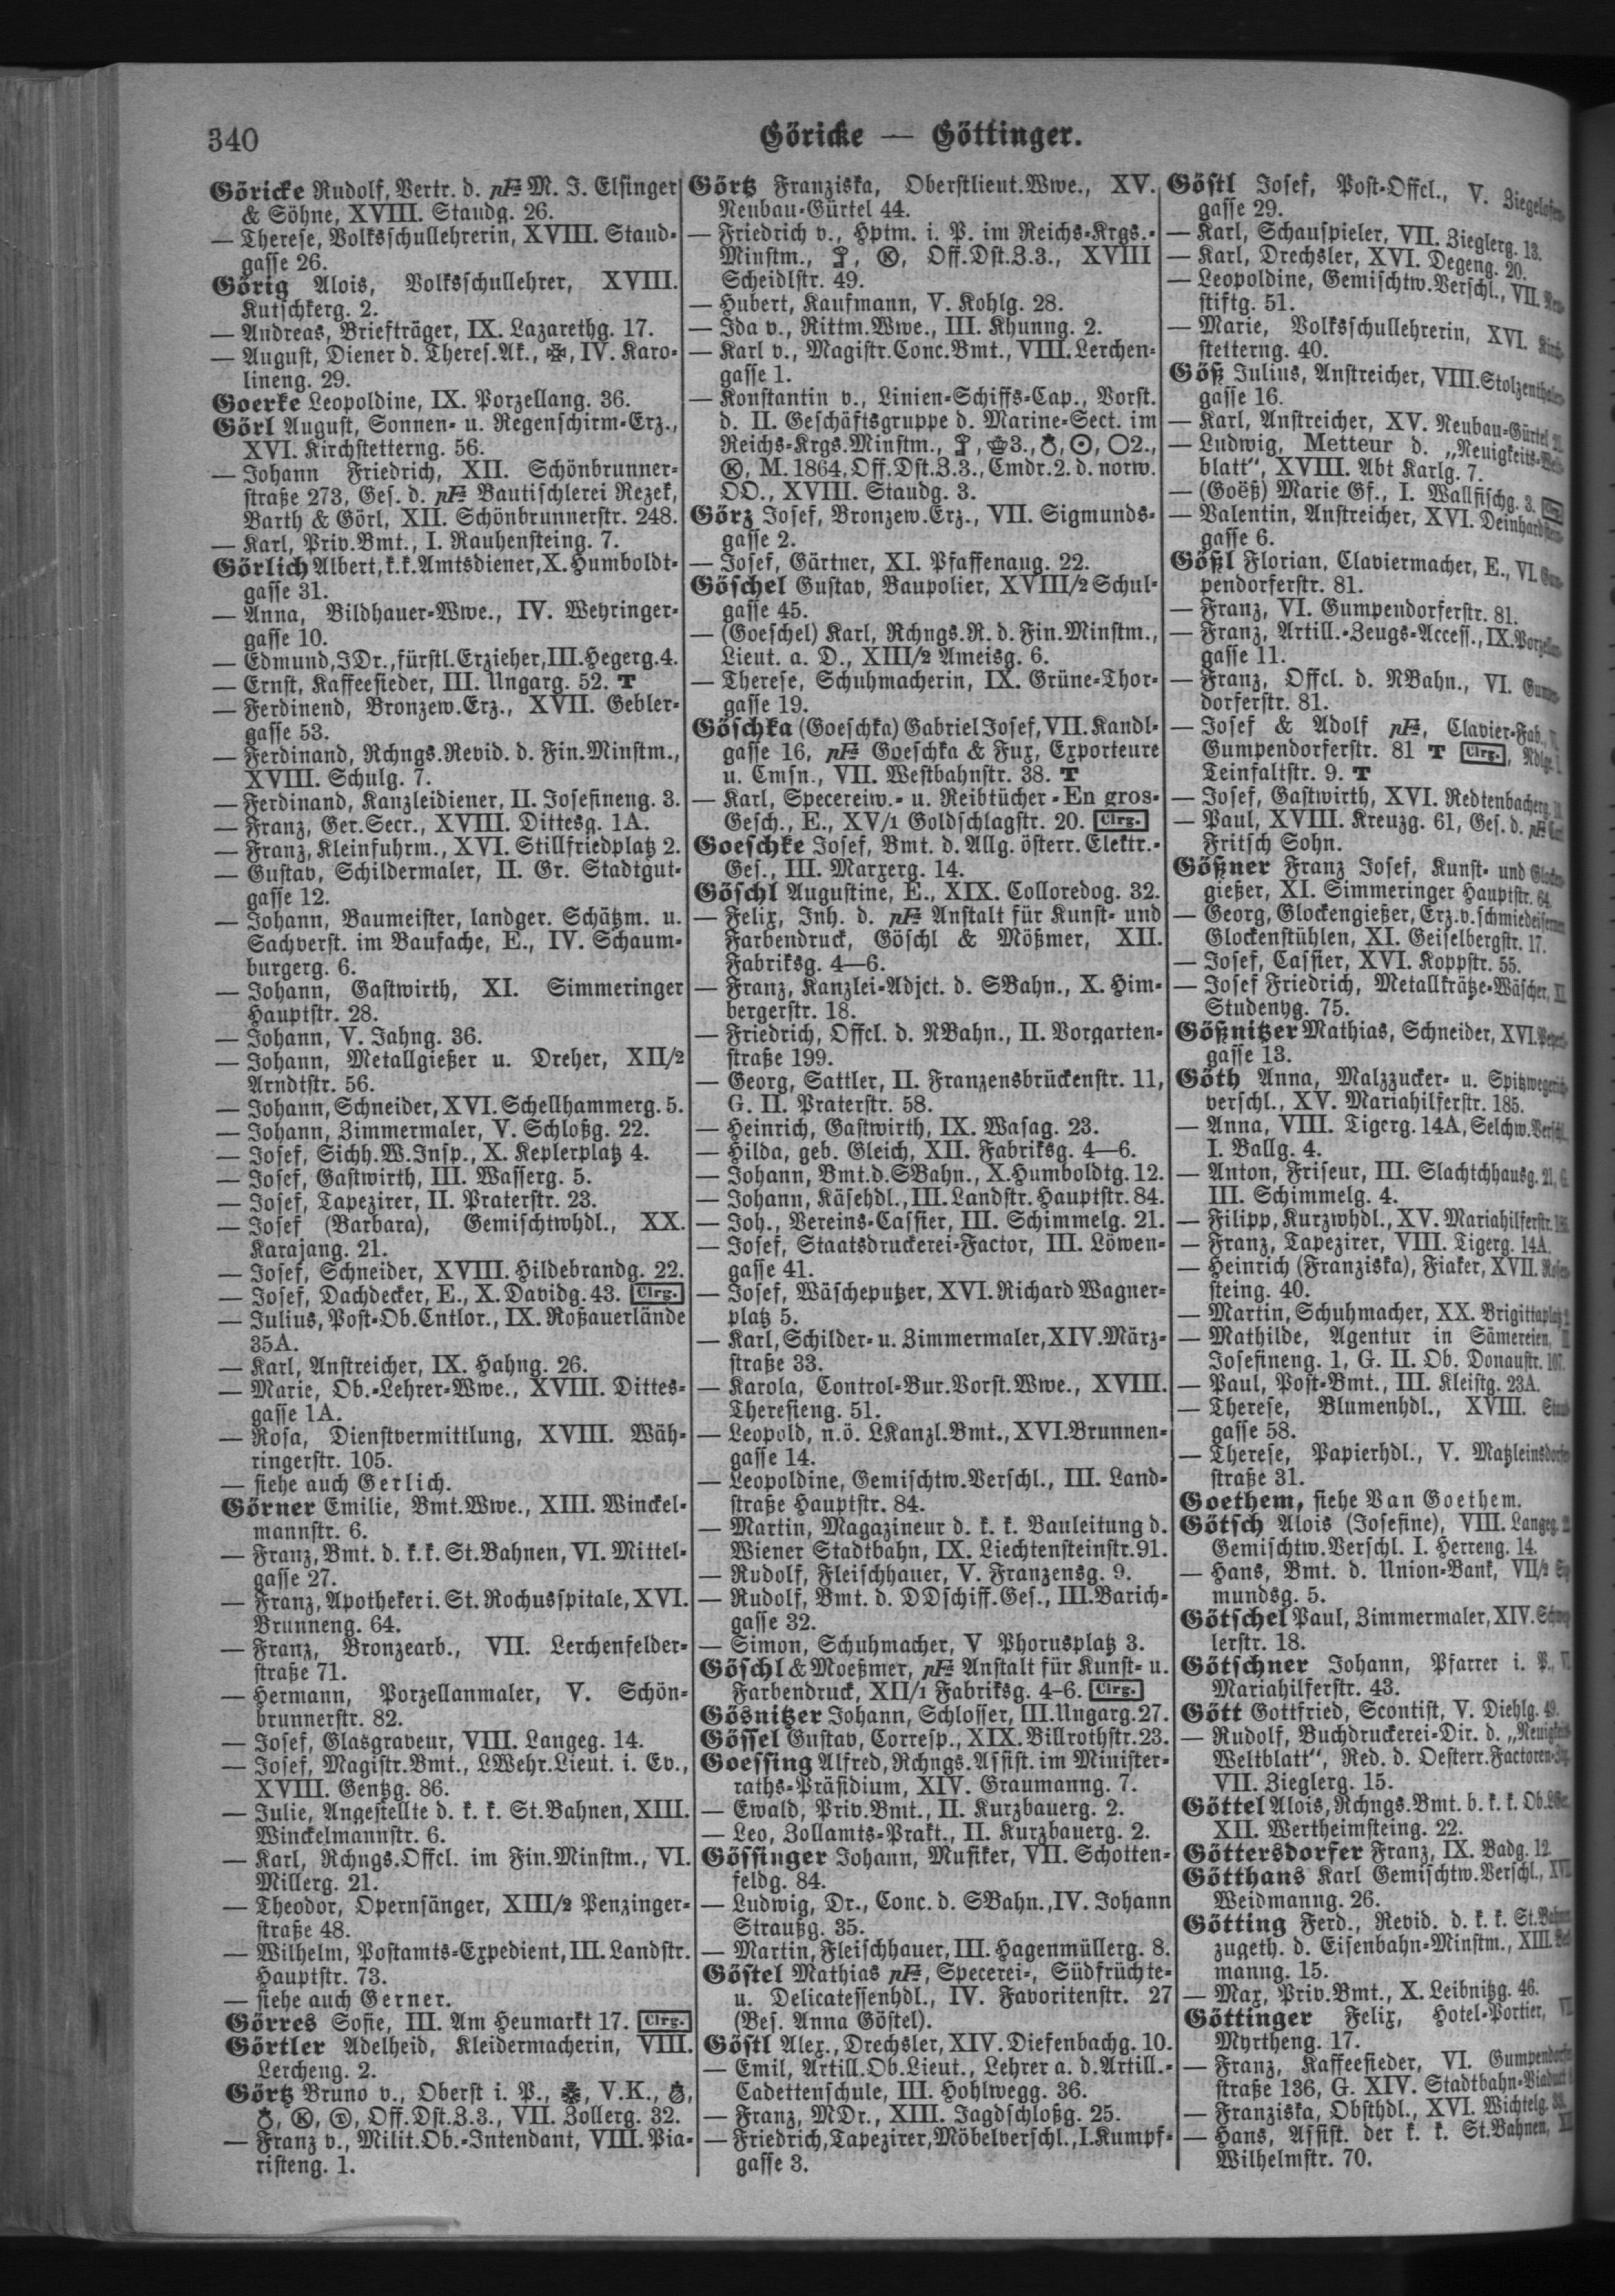 340
Göricke — Göttinger.
Göricke Rudolf, Vertr. d. pF= M. J. Elsinger
& Söhne, XVIII. Staudg. 26.
— Therese, Volksschullehrerin, XVIII. Staud-
gasse 26.
Görig Alois, Volksschullehrer, XVIII.
Kutschkerg. 2.
— Andreas, Briefträger, IX. Lazarethg. 17.
— August, Diener d. Theres.Ak., ✠, IV. Karo-
lineng. 29.
Goerke Leopoldine, IX. Porzellang. 36.
Görl August, Sonnen- u. Regenschirm-Erz.,
XVI. Kirchstetterng. 56.
— Johann Friedrich, XII. Schönbrunner-
straße 273, Ges. d. pF= Bautischlerei Rezek,
Barth & Görl, XII. Schönbrunnerstr. 248.
— Karl, Priv.Bmt., I. Rauhensteing. 7.
Görlich Albert, k.k.Amtsdiener, X. Humboldt-
gasse 31.
— Anna, Bildhauer-Wwe., IV. Wehringer-
gasse 10.
— Edmund, JDr., fürstl. Erzieher, III. Hegerg. 4.
— Ernst, Kaffeesieder, III. Ungarg. 52. T
— Ferdinend, Bronzew.Erz., XVII. Gebler-
gasse 53.
— Ferdinand, Rchngs.Revid. d. Fin.Minstm.,
XVIII. Schulg. 7.
— Ferdinand, Kanzleidiener, II. Josefineng. 3.
— Franz, Ger.Secr., XVIII. Dittesg. 1A.
— Franz, Kleinfuhrm., XVI. Stillfriedplatz 2.
— Gustav, Schildermaler, II. Gr. Stadtgut-
gasse 12.
— Johann, Baumeister, landger. Schätzm. u.
Sachverst. im Baufache, E., IV. Schaum-
burgerg. 6.
— Johann, Gastwirth, XI. Simmeringer
Hauptstr. 28.
— Johann, V. Jahng. 36.
— Johann, Metallgießer u. Dreher, XII/2
Arndtstr. 56.
— Johann, Schneider, XVI. Schellhammerg. 5.
— Johann, Zimmermaler, V. Schloßg. 22.
— Josef, Sichh.W.Insp., X. Keplerplatz 4.
— Josef, Gastwirth, III. Wasserg. 5.
— Josef, Tapezirer, II. Praterstr. 23.
— Josef (Barbara), Gemischtwhdl., XX.
Karajang. 21.
— Josef, Schneider, XVIII. Hildebrandg. 22.
— Josef, Dachdecker, E., X. Davidg. 43. Clrg.
— Julius, Post-Ob.Cntlor., IX. Roßauerlände
35A.
— Karl, Anstreicher, IX. Hahng. 26.
— Marie, Ob.-Lehrer-Wwe., XVIII. Dittes-
gasse 1A.
— Rosa, Dienstvermittlung, XVIII. Wäh-
ringerstr. 105.
— siehe auch Gerlich.
Görner Emilie, Bmt.Wwe., XIII. Winckel-
mannstr. 6.
— Franz, Bmt. d. k.k. St.Bahnen, VI. Mittel-
gasse 27.
— Franz, Apotheker i. St. Rochusspitale, XVI.
Brunneng. 64.
— Franz, Bronzearb., VII. Lerchenfelder-
straße 71.
— Hermann, Porzellanmaler, V. Schön-
brunnerstr. 82.
— Josef, Glasgraveur, VIII. Langeg. 14.
— Josef, Magistr.Bmt., LWehr.Lieut. i. Ev.,
XVIII. Gentzg. 86.
— Julie, Angestellte d. k. k. St.Bahnen, XIII.
Winckelmannstr. 6.
— Karl, Rchngs.Offcl. im Fin.Minstm., VI.
Millerg. 21.
— Theodor, Opernsänger, XIII/2 Penzinger-
straße 48.
— Wilhelm, Postamts-Expedient, III. Landstr.
Hauptstr. 73.
— siehe auch Gerner.
Görres Sofie, III. Am Heumarkt 17. Clrg.
Görtler Adelheid, Kleidermacherin, VIII.
Lercheng. 2.
Görtz Bruno v., Oberst i. P., V.K.,
Ⓚ, Off.Dst.Z.3., VII. Zollerg. 32.
— Franz v., Milit.Ob.-Intendant, VIII. Pia-
risteng. 1.
Görtz Franziska, Oberstlieut.Wwe., XV.
Neubau-Gürtel 44.
— Friedrich v., Hptm. i. P. im Reichs-Krgs.-
Minstm., Ⓚ, Off.Dst.Z.3., XVIII
Scheidlstr. 49.
— Hubert, Kaufmann, V. Kohlg. 28.
— Ida v., Rittm.Wwe., III. Khunng. 2.
— Karl v., Magistr.Conc.Bmt., VIII. Lerchen-
gasse 1.
— Konstantin v., Linien-Schiffs-Cap., Vorst.
d. II. Geschäftsgruppe d. Marine-Sect. im
Reichs-Krgs.Minstm., 3., ⊙, ○2.,
Ⓚ, M. 1864, Off.Dst.Z.3., Cmdr. 2. d. norw.
OO., XVIII. Staudg. 3.
Görz Josef, Bronzew.Erz., VII. Sigmunds-
gasse 2.
— Josef, Gärtner, XI. Pfaffenaug. 22.
Göschel Gustav, Baupolier, XVIII/2 Schul-
gasse 45.
— (Goeschel) Karl, Rchngs.R. d. Fin.Minstm.,
Lieut. a. D., XIII/2 Ameisg. 6.
— Therese, Schuhmacherin, IX. Grüne-Thor-
gasse 19.
Göschka (Goeschka) Gabriel Josef, VII. Kandl-
gasse 16, pF= Goeschka & Fux, Exporteure
u. Cmsn., VII. Westbahnstr. 38. T
— Karl, Specereiw.- u. Reibtücher-En gros-
Gesch., E., XV/1 Goldschlagstr. 20. Clrg.
Goeschke Josef, Bmt. d. Allg. österr. Elektr.-
Ges., III. Marxerg. 14.
Göschl Augustine, E., XIX. Colloredog. 32.
— Felix, Inh. d. pF= Anstalt für Kunst- und
Farbendruck, Göschl & Mößmer, XII.
Fabriksg. 4—6.
— Franz, Kanzlei-Adjct. d. SBahn., X. Him-
bergerstr. 18.
— Friedrich, Offcl. d. NBahn., II. Vorgarten-
straße 199.
— Georg, Sattler, II. Franzensbrückenstr. 11,
G. II. Praterstr. 58.
— Heinrich, Gastwirth, IX. Wasag. 23.
— Hilda, geb. Gleich, XII. Fabriksg. 4—6.
— Johann, Bmt.d.SBahn., X. Humboldtg. 12.
— Johann, Käsehdl., III. Landstr. Hauptstr. 84.
— Joh., Vereins-Cassier, III. Schimmelg. 21.
— Josef, Staatsdruckerei-Factor, III. Löwen-
gasse 41.
— Josef, Wäscheputzer, XVI. Richard Wagner-
platz 5.
— Karl, Schilder- u. Zimmermaler, XIV. März-
straße 33.
— Karola, Control-Bur.Vorst.Wwe., XVIII.
Theresieng. 51.
— Leopold, n.ö. LKanzl.Bmt., XVI. Brunnen-
gasse 14.
— Leopoldine, Gemischtw.Verschl., III. Land-
straße Hauptstr. 84.
— Martin, Magazineur d. k. k. Bauleitung d.
Wiener Stadtbahn, IX. Liechtensteinstr. 91.
— Rudolf, Fleischhauer, V. Franzensg. 9.
— Rudolf, Bmt. d. DDschiff.Ges., III. Barich-
gasse 32.
— Simon, Schuhmacher, V Phorusplatz 3.
Göschl & Moeßmer, pF= Anstalt für Kunst- u.
Farbendruck, XII/1 Fabriksg. 4-6. Clrg.
Gösnitzer Johann, Schlosser, III. Ungarg. 27.
Gössel Gustav, Corresp., XIX. Billrothstr. 23.
Goessing Alfred, Rchngs.Assist. im Minister-
raths-Präsidium, XIV. Graumanng. 7.
— Ewald, Priv.Bmt., II. Kurzbauerg. 2.
— Leo, Zollamts-Prakt., II. Kurzbauerg. 2.
Gössinger Johann, Musiker, VII. Schotten-
feldg. 84.
— Ludwig, Dr., Conc. d. SBahn., IV. Johann
Straußg. 35.
— Martin, Fleischhauer, III. Hagenmüllerg. 8.
Göstel Mathias pF=, Specerei-, Südfrüchte-
u. Delicatessenhdl., IV. Favoritenstr. 27
(Bes. Anna Göstel).
Göstl Alex., Drechsler, XIV. Diefenbachg. 10.
— Emil, Artill.Ob.Lieut., Lehrer a. d. Artill.-
Cadettenschule, III. Hohlwegg. 36.
— Franz, MDr., XIII. Jagdschloßg. 25.
— Friedrich, Tapezirer, Möbelverschl., I. Kumpf-
gasse 3.
Göstl Josef, Post-Offcl., V. Ziegelofen-
gasse 29.
— Karl, Schauspieler, VII. Zieglerg. 13.
— Karl, Drechsler, XVI. Degeng. 20.
— Leopoldine, Gemischtw.Verschl., VII.
stiftg. 51.
— Marie, Volksschullehrerin, XVI.
stetterng. 40.
Göß Julius, Anstreicher, VIII. Stolzenthaler-
gasse 16.
— Karl, Anstreicher, XV. Neubau-Gürtel
— Ludwig, Metteur d. „Neuigkeits-
blatt“, XVIII. Abt Karlg. 7.
— (Goëß) Marie Gf., I. Wallfischg. 3. Clrg.
— Valentin, Anstreicher, XVI. Deinhardstein-
gasse 6.
Gößl Florian, Claviermacher, E., VI. Gum-
pendorferstr. 81.
— Franz, VI. Gumpendorferstr. 81.
— Franz, Artill.-Zeugs-Access., IX. Porzellan-
gasse 11.
— Franz, Offcl. d. NBahn., VI. Gumpen-
dorferstr. 81.
— Josef & Adolf pF=, Clavier-Fab.,
Gumpendorferstr. 81 T Clrg., Ndlge. I.
Teinfaltstr. 9. T
— Josef, Gastwirth, XVI. Redtenbacherg.
— Paul, XVIII. Kreuzg. 61, Ges. d. pF=
Fritsch Sohn.
Gößner Franz Josef, Kunst- und Glocken-
gießer, XI. Simmeringer Hauptstr. 64.
— Georg, Glockengießer, Erz.v.schmiedeisernen
Glockenstühlen, XI. Geiselbergstr. 17.
— Josef, Cassier, XVI. Koppstr. 55.
— Josef Friedrich, Metallkrätze-Wäscher, XI.
Studenyg. 75.
Gößnitzer Mathias, Schneider, XVI.
gasse 13.
Göth Anna, Malzzucker- u. Spitzwegerich-
verschl., XV. Mariahilferstr. 185.
— Anna, VIII. Tigerg. 14A, Selchw.Verschl.,
I. Ballg. 4.
— Anton, Friseur, III. Slachtchhausg. 21, G.
III. Schimmelg. 4.
— Filipp, Kurzwhdl., XV. Mariahilferstr.
— Franz, Tapezirer, VIII. Tigerg. 14A.
— Heinrich (Franziska), Fiaker, XVII. Rosen-
steing. 40.
— Martin, Schuhmacher, XX. Brigittaplatz
— Mathilde, Agentur in Sämereien, II
Josefineng. 1, G. II. Ob. Donaustr. 107.
— Paul, Post-Bmt., III. Kleistg. 23A.
— Therese, Blumenhdl., XVIII.
gasse 58.
— Therese, Papierhdl., V. Matzleinsdorfer-
straße 31.
Goethem, siehe Van Goethem.
Götsch Alois (Josefine), VIII. Langeg.
Gemischtw.Verschl. I. Herreng. 14.
— Hans, Bmt. d. Union-Bank, VII/2 Sig-
mundsg. 5.
Götschel Paul, Zimmermaler, XIV.
lerstr. 18.
Götschner Johann, Pfarrer i. P.,
Mariahilferstr. 43.
Gött Gottfried, Scontist, V. Diehlg. 49.
— Rudolf, Buchdruckerei-Dir. d. „Neuigkeits-
Weltblatt“, Red. d. Oesterr.Factoren-Ztg.
VII. Zieglerg. 15.
Göttel Alois, Rchngs.Bmt. b. k. k. Ob.LGer.
XII. Wertheimsteing. 22.
Göttersdorfer Franz, IX. Badg. 12
Götthans Karl Gemischtw.Verschl.,
Weidmanng. 26.
Götting Ferd., Revid. d. k. k. St.Bahnen
zugeth. d. Eisenbahn-Minstm., XIII.
manng. 15.
— Max, Priv.Bmt., X. Leibnitzg. 46.
Göttinger Felix, Hotel-Portier,
Myrtheng. 17.
— Franz, Kaffeesieder, VI. Gumpendorfer-
straße 136, G. XIV. Stadtbahn-Viaduct
— Franziska, Obsthdl., XVI. Wichtelg.
— Hans, Assist. der k. k. St.Bahnen,
Wilhelmstr. 70.